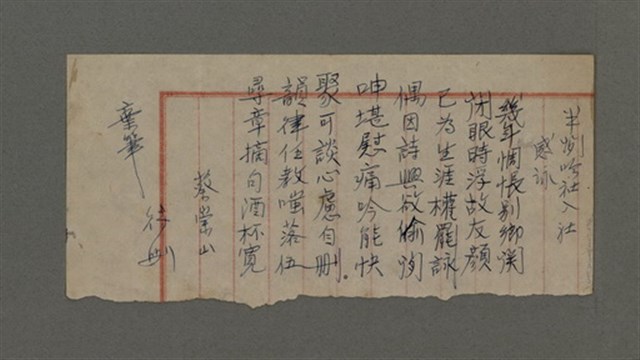 半閒吟社入社
感詠
幾年惆悵別鄉関
閉眼時浮故友顏
已為生涯權罷詠
偶因詩興欲偷閒
呻堪慰痛吟能快
聚可談心慮自刪。
韻律任教嗤落伍
尋章摘句酒杯寬
蔡榮山